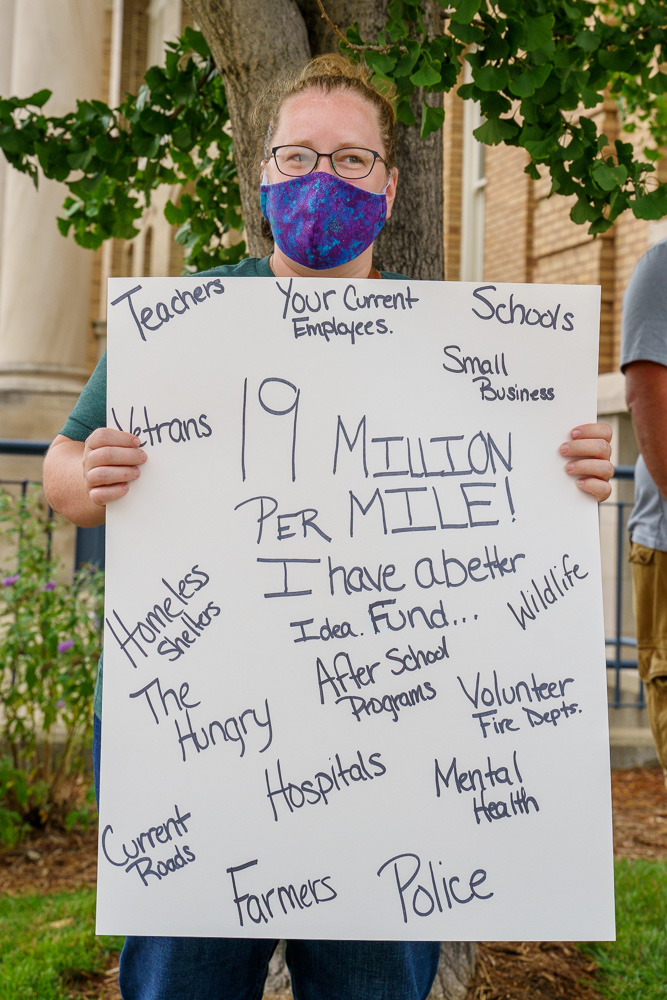 Teachers
Your Current
Employees.
Schools
Small
Business
Vetrans
19 MILLION
PER MILE!
I have a better
Idea. Fund...
Wildlife
Homeless
Shelters
After School
Programs
The
Hungry
Volunteer
Fire Depts.
Hospitals
Mental
Health
Current
Roads
Farmers
Police